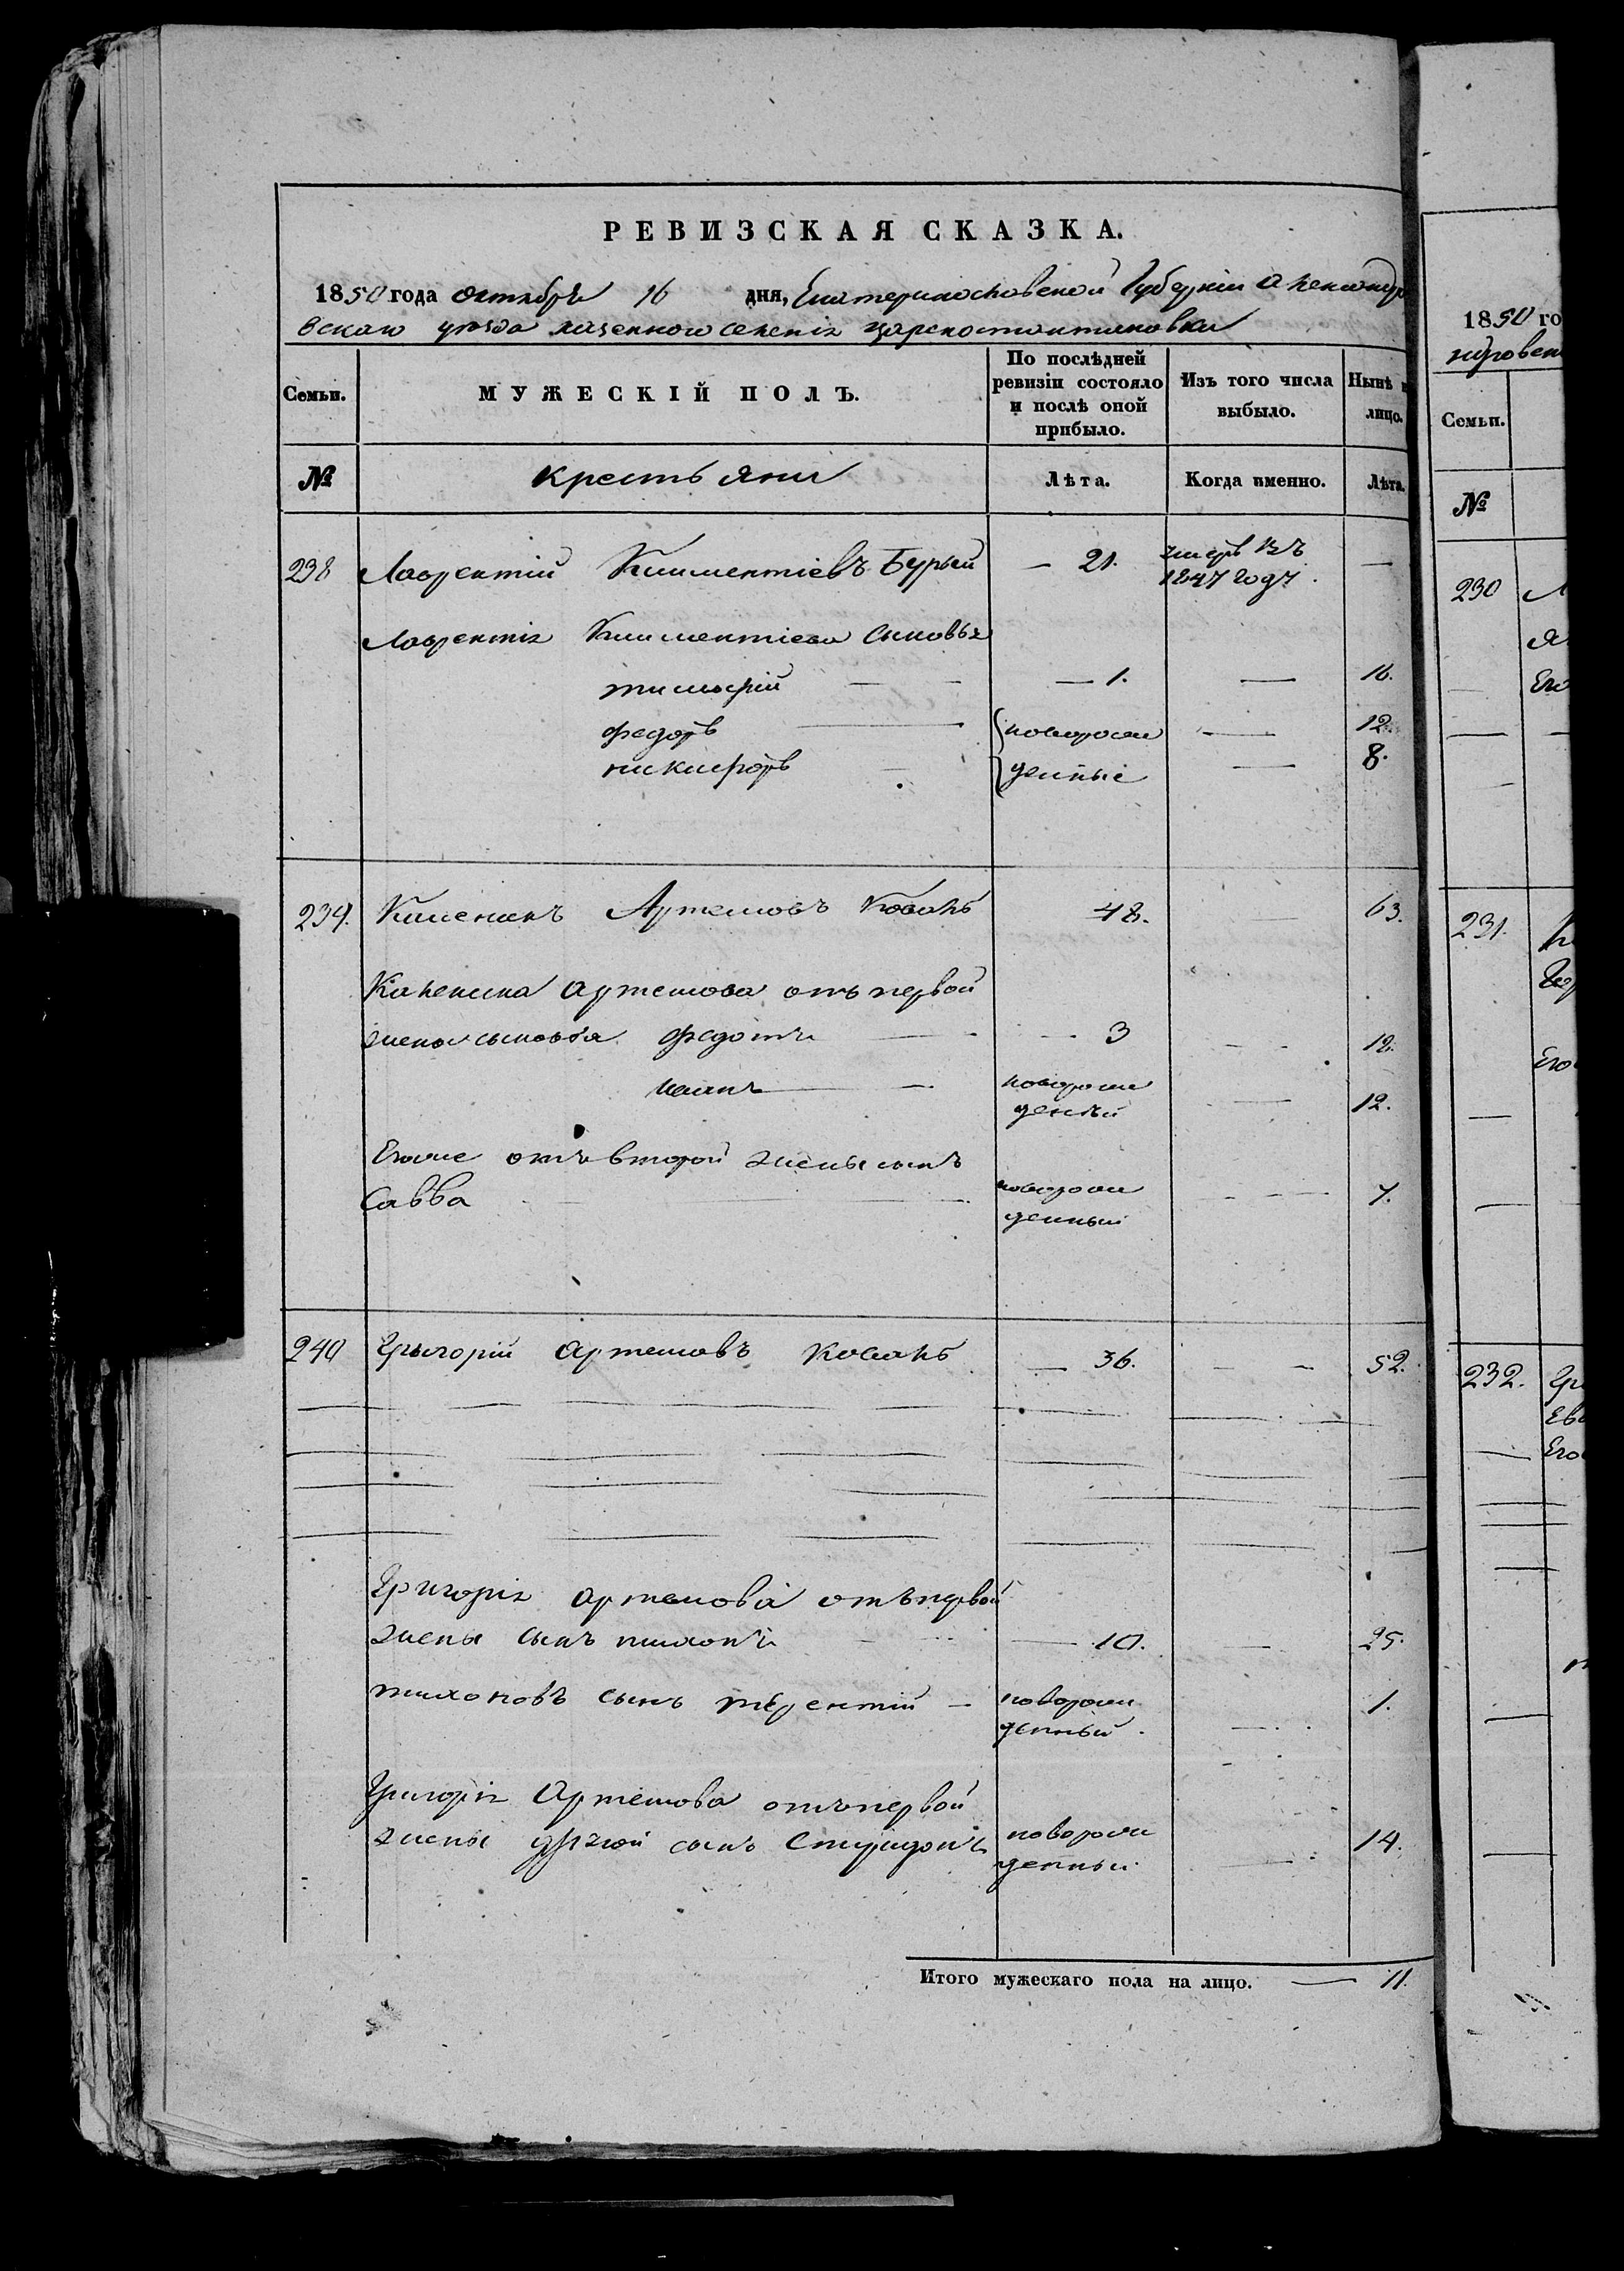 РЕВИЗСКАЯ СКАЗКА.
1850 года октября 16 дня, Екатеринославской Губерніи Александро
вскаго уезда казенного селенія Царсконстантиновки
Семьи.
МУЖЕСКІЙ ПОЛЪ.
По послѣдней ревизіи состояло и послѣ оной прибыло.
Изъ того числа выбыло.
Нынѣ на лицо.
№
крестьяни
Лѣта.
Когда именно.
Лѣта.
238 Лаврентій Климентіевъ Бурый — 21. умеръ въ 1847 году. —
Лаврентія Климентіева сыновья
тимофій — 1. — 16.
федоръ новорож — 12.
никифоръ денные — 8.
239. Артемовъ Коваль 48. — 63.
Артемова отъ первой
жены сыновья федотъ — 3 — 18.
иванъ — новорож
денный — 12.
Егоже отъ второй жены сынъ
Савва новорож
денный — 7.
240 Григорій Артемовъ Коваль — 36. — 52.
Григорія Артемова отъ первой
жены сынъ тихонъ — 10. — 25.
тихоновъ сынъ терентій — новорож
денный — 1.
Григорія Артемова отъ первой
жены другой сынъ Спиридонъ новорож
денный — 14.
Итого мужескаго пола на лицо. — 11.
1850 го
Семьи.
№
230
231.
232.